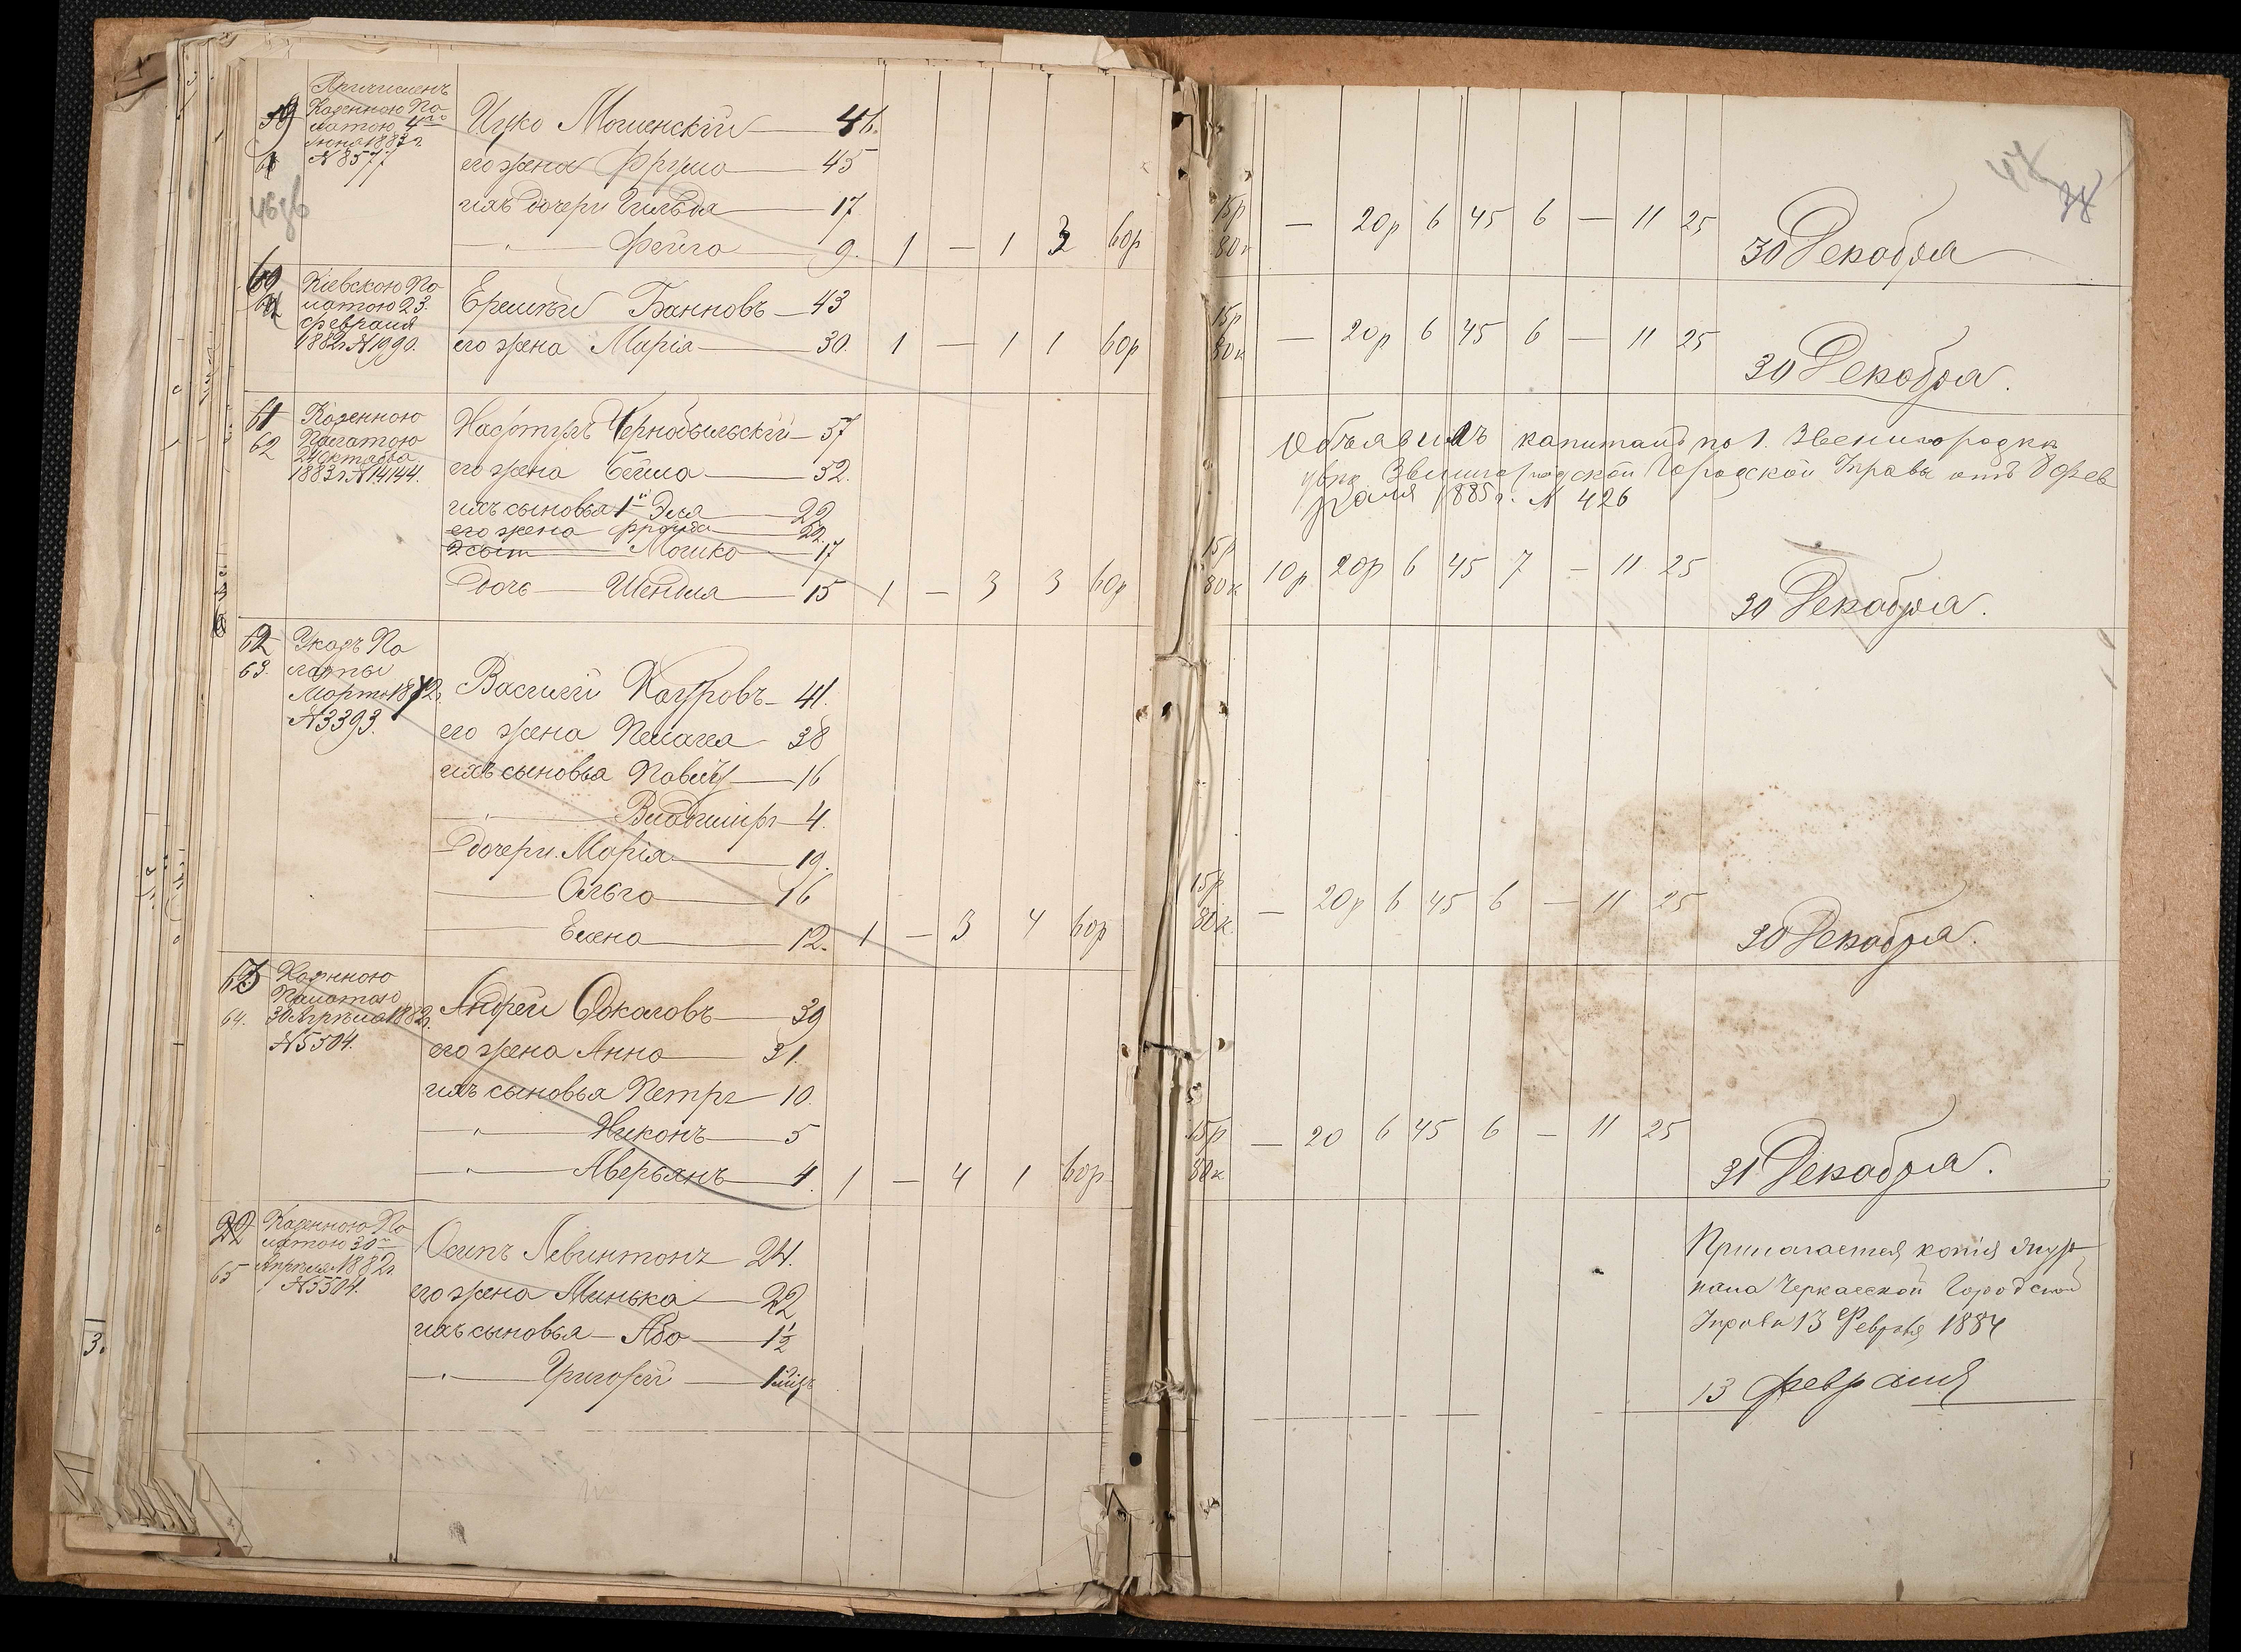 59
Причисленъ
Казенною Па
латою 4го
Іюня 1883 г.
N 8577
Ицко Мошенскій 46.
его жена Фрума 45
ихъ дочери Гильда 17
" Фейга 9. 1 — 1 3 60р
15р 80к — 20р 6 45 6 — 11 25 30 Декабря
60
Кіевскою Па
латою 23.
Февраля
1882 г. N 1990.
Еремѣй Банновъ 43
его жена Марія 30. 1 — 1 1 60р
15р 80к — 20р 6 45 6 — 11 25 30 Декабря.
61
62
Казенною
Палатою
24 Октября
1883 г. N 14144.
Нафтулъ Чернобыльскій 57
его жена Бейла 52.
ихъ сыновья 1й Эля 22
его жена 22.
2 сын Мошко 17
Дочь Шейндля 15 1 — 3 3 60р
Объявилъ капиталъ по г. Звенигородкѣ
Звенигородской Городской Управы отъ 8 Фев
раля 1885 г. N 426
15р 80к 10р 20р 6 45 7 — 11 25 30 Декабря.
62
63.
Указъ Па
латы
Марта 1882 г.
N 3393.
Василій Кауровъ 41.
его жена Пелагея 38
ихъ сыновья Павелъ 16
" Владиміръ 4.
дочери Марія 19.
Ольга 16
Елена 12. 1 — 3 4 60р
15р 80к. — 20р 6 45 6 — 11 25 30 Декабря.
63
64.
Казенною
Палатою
30 Апрѣля 1882 г.
N 5504.
Андрей 39
его жена Анна 31.
ихъ сыновья Петръ 10.
" Никонъ 5
" Аверьянъ 4. 1 — 4 1 60р
15р 80к — 20 6 45 6 — 11 25 31 Декабря.
65
Казенною Па
латою 30го
Апрѣля 1882 г.
N 5504.
Осипъ Левинтонъ 24.
его жена Минька 22
ихъ сыновья Або 1½
" Григорій 1 мѣс.
Прилагается копія жур
нала Черкасской Городской
Управы 13 Февраля 1884
13 февраля